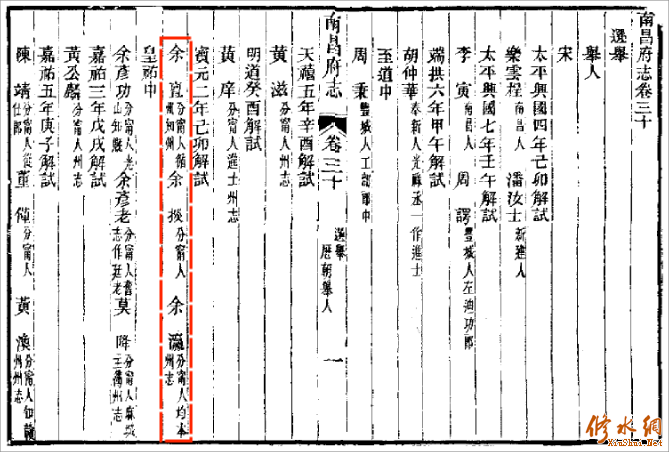 南昌府志卷三十
選舉
舉人
宋
太平興國四年己卯解試
樂雲程 南昌人 潘汝士 新建人
太平興國七年壬午解試
李寅 南昌人 周諤 豐城人左迪功郎
端拱六年甲午解試
胡仲華 奉新人光祿丞一作進士
至道中
周秉 豐城人工部郎中
南昌府志 卷三十 選舉 歷朝舉人 一
天禧五年辛酉解試
黃滋 分甯人州志
明道癸酉解試
黃庠 分甯人進士州志
寶元二年己卯解試
余 分甯人 州知州 余掞 分甯人 余瀛 分甯人均本州志
皇祐中
余彥功 分甯人 山知縣 余彥老 分甯人舊志作廷老 莫降 分甯人 州志
嘉祐三年戊戌解試
黃公麟 分甯人州志
嘉祐五年庚子解試
陳靖 分甯人從仕郎 董 分甯人 黃渙 分甯人知 州州志
修水網
XiuShui.Net